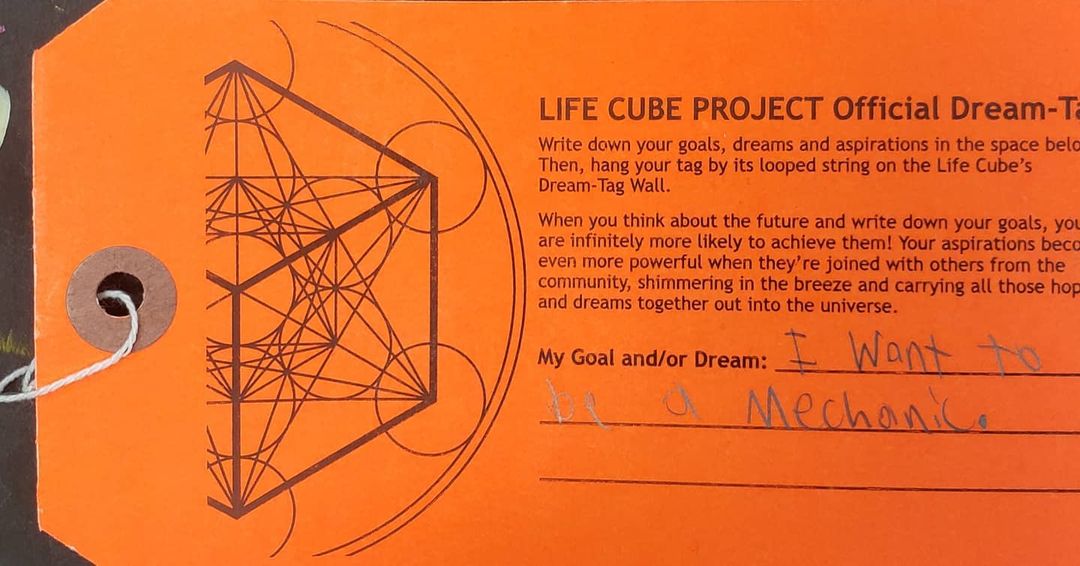 LIFE CUBE PROJECT Official Dream-Ta
Write down your goals, dreams and aspirations in the space belo
Then, hang your tag by its looped string on the Life Cube's
Dream-Tag Wall.
When you think about the future and write down your goals, you
are infinitely more likely to achieve them! Your aspirations beco
even more powerful when they're joined with others from the
community, shimmering in the breeze and carrying all those hop
and dreams together out into the universe.
My Goal and/or Dream: I Want to
be a Mechanic.